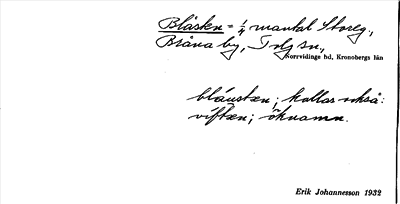 Blåsten = 1/4 mantal Storeg.,
Bråna by, Tolg sn.,
Norrvidinge hd, Kronobergs län
blåustæn; kallas också:
viftæn; öknamn.
Erik Johannesson 1932